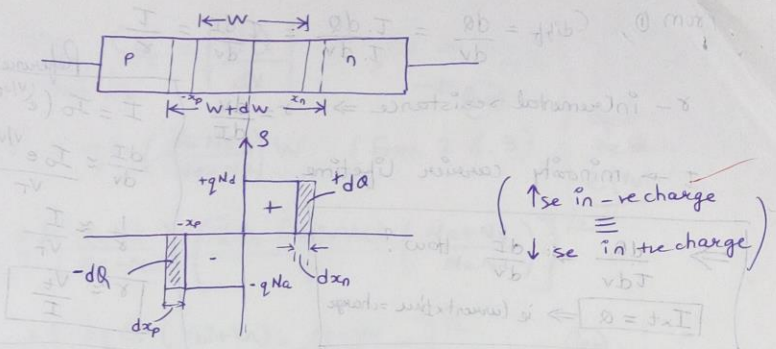 W
P
n
-xp
xn
W+dw
ρ
+qNd
+dQ
+
-xp
-
-dQ
-qNa
dxn
dxp
( ↑se in -ve charge
≡
↓ se in +ve charge )